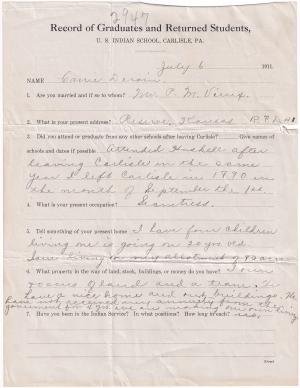 2947
Record of Graduates and Returned Students,
U. S. INDIAN SCHOOL, CARLISLE, PA.
July 6 1911.
NAME Carrie Deroin
1. Are you married and if so to whom? Mr. P. M. Vieux.
2. What is your present address? Reserve, Kansas R.F.D.
3. Did you attend or graduate from any other schools after leaving Carlisle? Give names of
schools and dates if possible. Attended Haskell after
leaving Carlisle in the same
year I left Carlisle in 1890
in the month of September the 1st
4. What is your present occupation? Seamstress.
5. Tell something of your present home. I have four children
living one is going on 20 yrs old
I am living on our allotment of 80 acres
6. What property in the way of land, stock, buildings, or money do you have? I own
acres of land and a team. We
have a nice home and out buildings. We
have not received any annuity from the
government for 4 yrs. we are making our own living
7. Have you been in the Indian Service? In what positions? How long in each?
(Over)